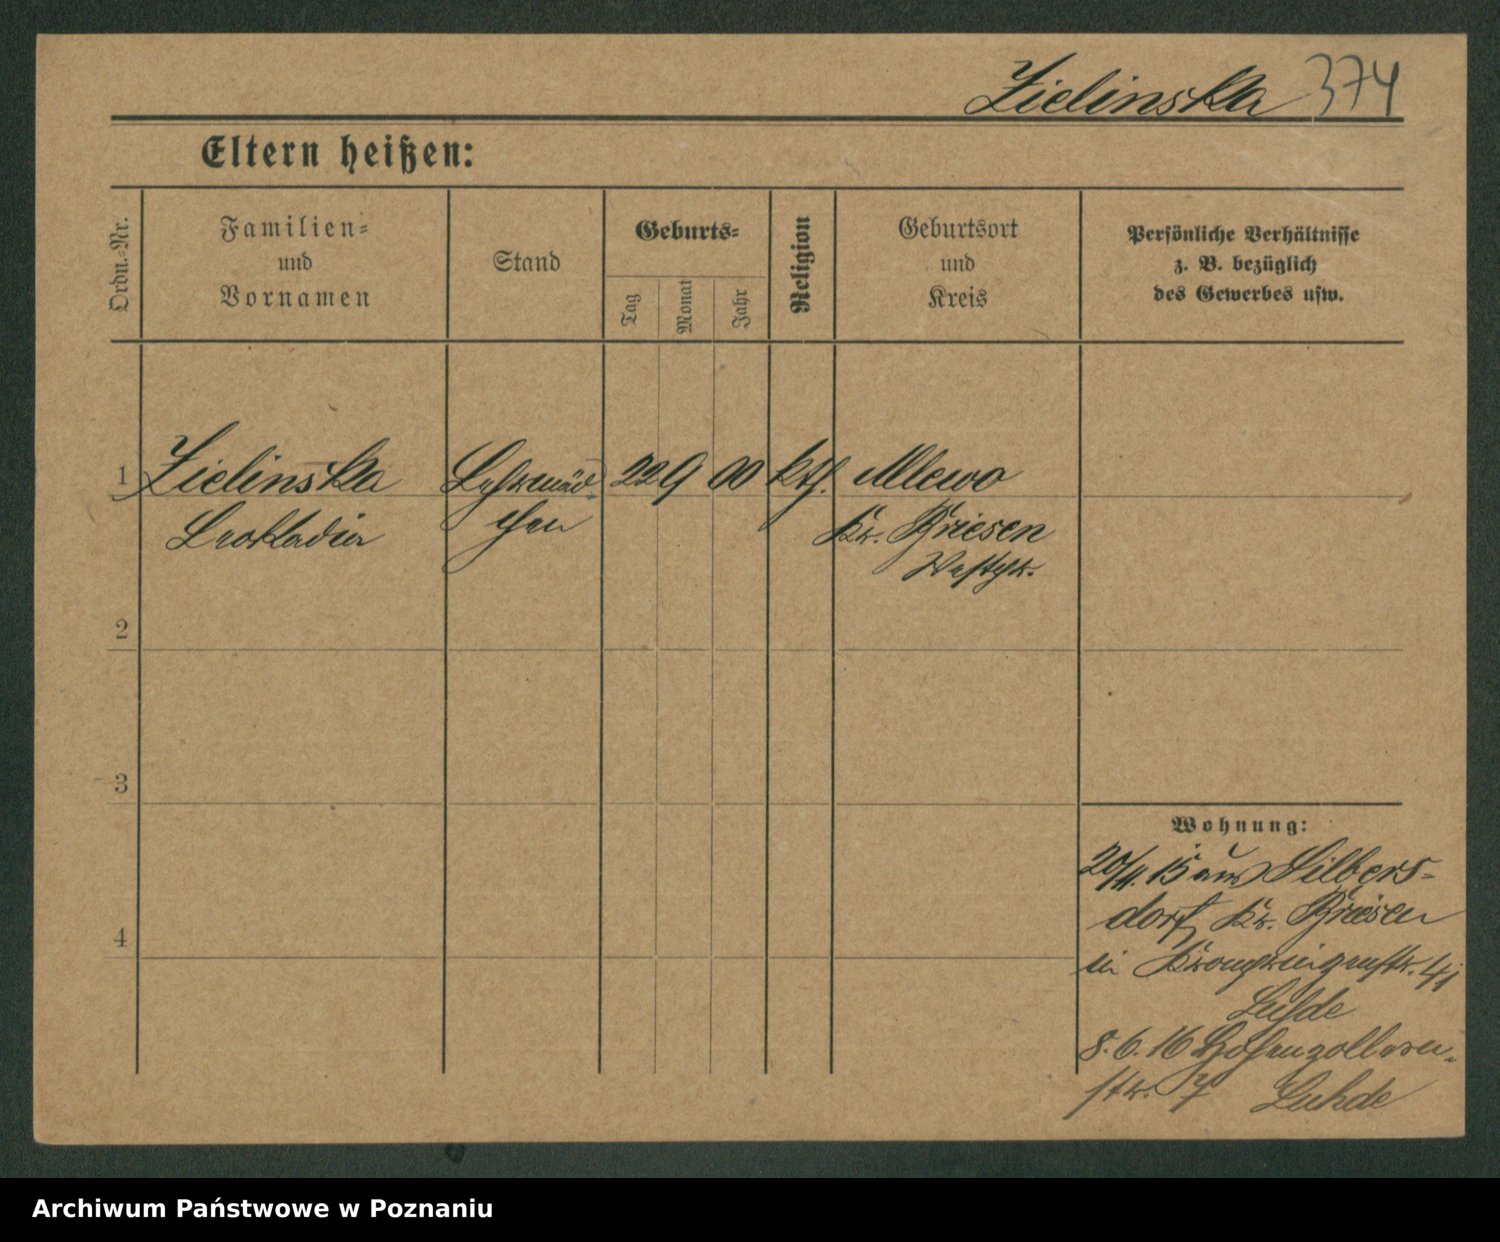 Zielinska 374
Eltern heißen:
Ordn.-Nr.
Familien-
und
Vornamen
Stand
Geburts-
Tag
Monat
Jahr
Religion
Geburtsort
und
Kreis
Persönliche Verhältnisse
z. B. bezüglich
des Gewerbes usw.
1 Zielinska Lehrmäd- 22 9 00 kth. Mlewo
Leokadia chen Kr. Briesen
Westpr.
2
3
4
Wohnung:
20/11. 15 aus Silbers-
dorf, Kr. Briesen
in Kronprinzenstr.
Luhde
8. 6. 16 Hohenzollern-
str. 7 Luhde
Archiwum Państwowe w Poznaniu